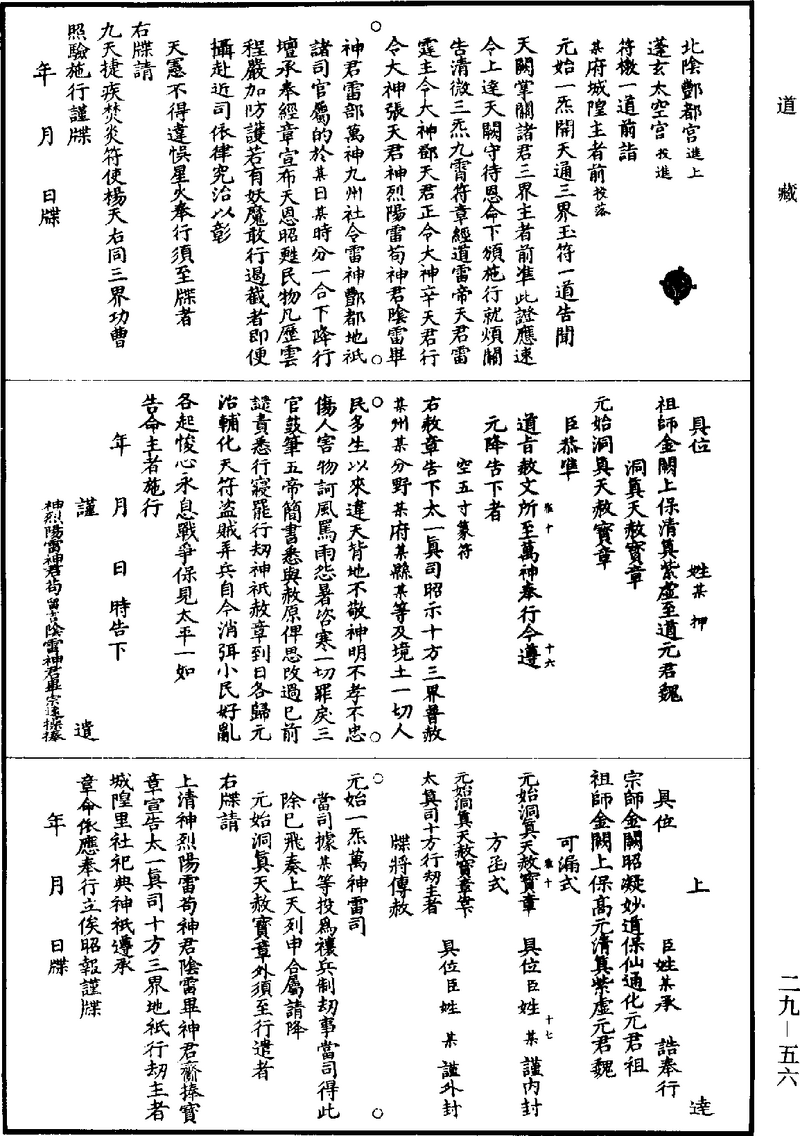 道藏
北陰酆都宮進上
蓬玄太空宮投進
符檄一道前詣
某府城隍主者前投落
元始一炁開天通三界玉符一道告聞
天闕掌關諸君三界主者前準此證應速
令上達天闕守待恩命下頒施行就煩關
告清微三炁九霄符章經道雷帝天君雷
霆主令大神鄧天君正令大神辛天君行
令大神張天君神烈陽雷苟神君陰雷畢
神君雷部萬神九州社令雷神酆都地祇
諸司官屬的於某日某時分一合下降行
壇承奉經章宣布天恩昭甦民物凡歷雲
程嚴加防護若有妖魔敢行遏截者即便
攝赴近司依律究治以彰
天憲不得違悞星火奉行須至牒者
右牒請
九天捷疾焚炎符使楊天右同三界功曹
照驗施行謹牒
年 月 日牒
具位 姓某押
祖師金闕上保清真紫虛至道元君魏
洞真天赦寶章
元始洞真天赦寶章
臣恭準
道旨赦文所至萬神奉行今遵
張十 十六
元降告下者
空五寸篆符
右赦章告下太一真司昭示十方三界普赦
某州某分野某府某縣某等及境土一切人
民多生以來違天背地不敬神明不孝不忠
傷人害物訶風罵雨怨暑咨寒一切罪戾三
官鼓筆五帝簡書悉與赦原俾思改過已前
譴責悉行寢罷行劫神祇赦章到日各歸元
治輔化天符盜賊弄兵自今消弭小民好亂
各起悛心永息戰爭保見太平一如
告命主者施行
年 月 日 時告下
謹 遣
神烈陽雷神君苟留吉陰雷神君畢宗遠操捧
具位 上 達
臣姓某承 誥奉行
宗師金闕昭凝妙道保仙通化元君祖
祖師金闕上保高元清真紫虛元君魏
可漏式
元始洞真天赦寶章 具位臣姓 某 謹內封
張十 十七
方函式
元始洞真天赦寶章告下
太真司十方行劫主者 具位臣姓 某 謹外封
牒將傳赦
元始一炁萬神雷司
當司據某等投為禳兵制劫事當司得此
除已飛奏上天列申合屬請降
元始洞真天赦寶章外須至行遣者
右牒請
上清神烈陽雷苟神君陰雷畢神君齎捧寶
章宣告太一真司十方三界地祇行劫主者
城隍里社祀典神祇遵承
章命依應奉行立俟昭報謹牒
年 月 日牒
二九—五六